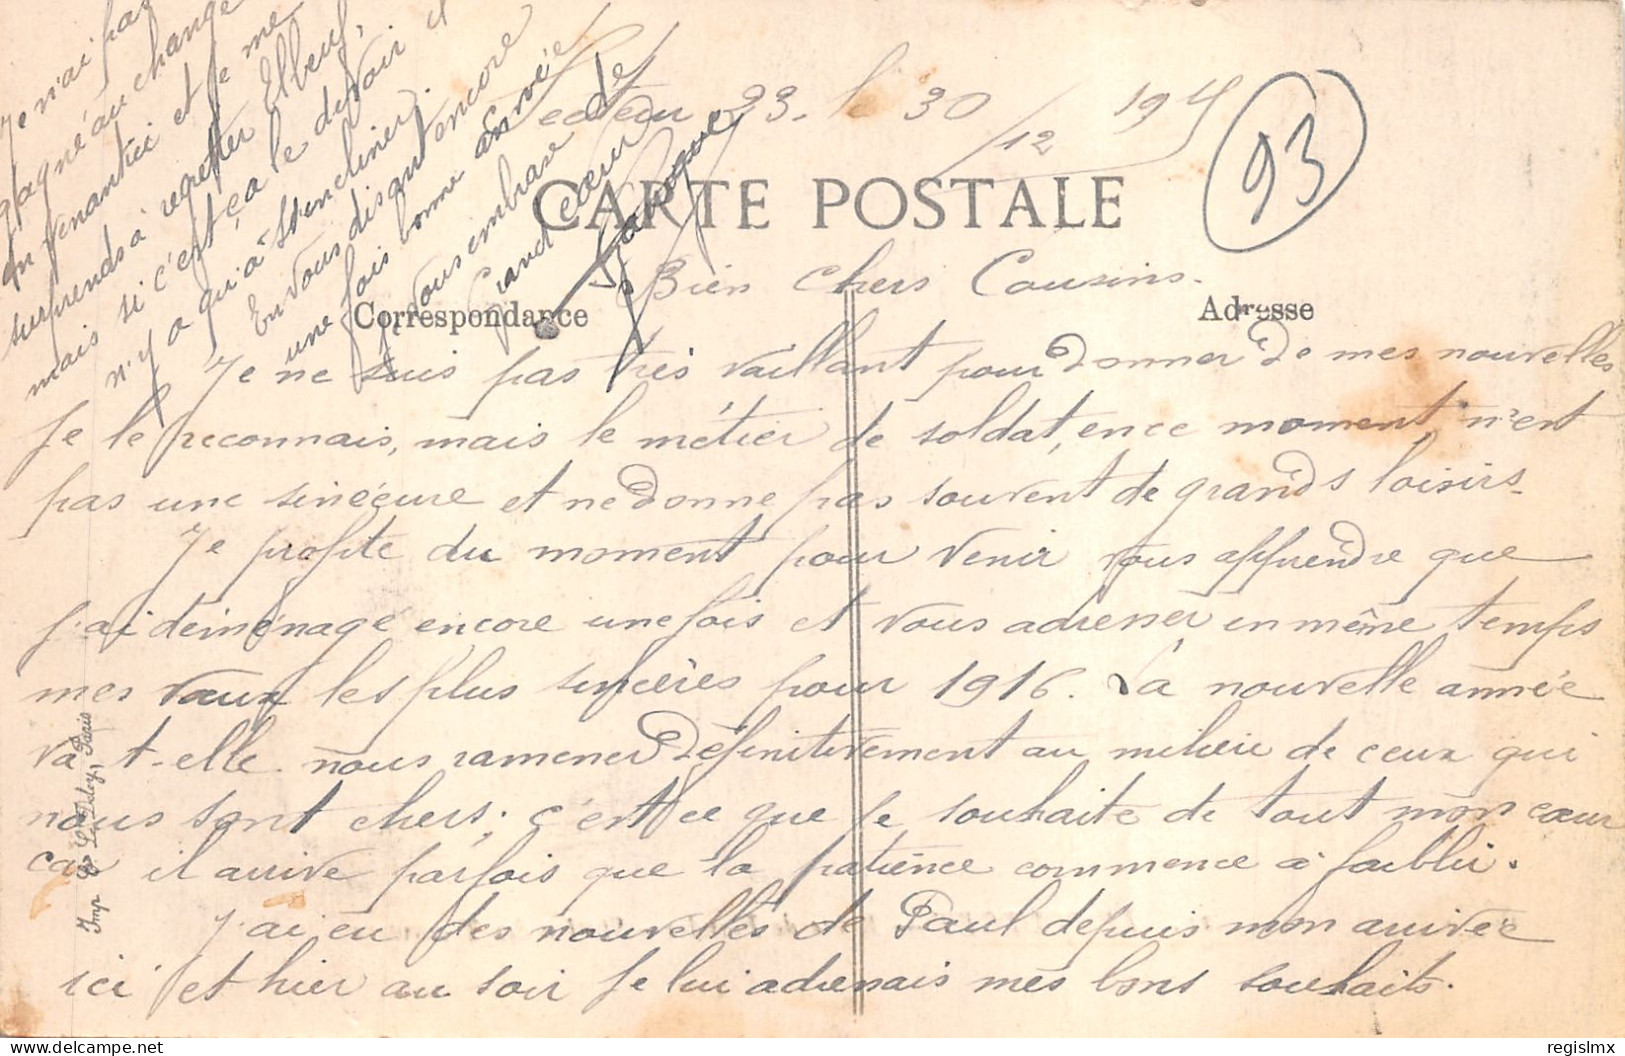 Secteur 93. le 30/12 1915
93
CARTE POSTALE
Bien Chers Cousins.
Correspondance
Adresse
Je ne suis pas très vaillant pour donner de mes nouvelles
Je le reconnais, mais le métier de soldat, en ce moment, n'est
pas une sinécure et ne donne pas souvent de grands loisirs.
Je profite du moment pour venir vous apprendre que
j'ai déménagé encore une fois et vous adresser en même temps
mes vœux les plus sincères pour 1916. La nouvelle année
va-t-elle nous ramener définitivement au milieu de ceux qui
nous sont chers; c'est ce que je souhaite de tout mon cœur
car il arrive parfois que la patience commence à faiblir.
J'ai eu des nouvelles de Paul depuis mon arrivée
ici et hier au soir je lui adressais mes bons souhaits.
Je n'ai pas
gagné au change
en venant ici et je me
surprends à regretter Elbeuf,
mais si c'est ça le devoir il
n'y a qu'à s'incliner.
En vous disant encore
une fois bonne année
je vous embrasse de
Grand cœur
Imp. E. Le Deley, Paris
delcampe.net
regislmx